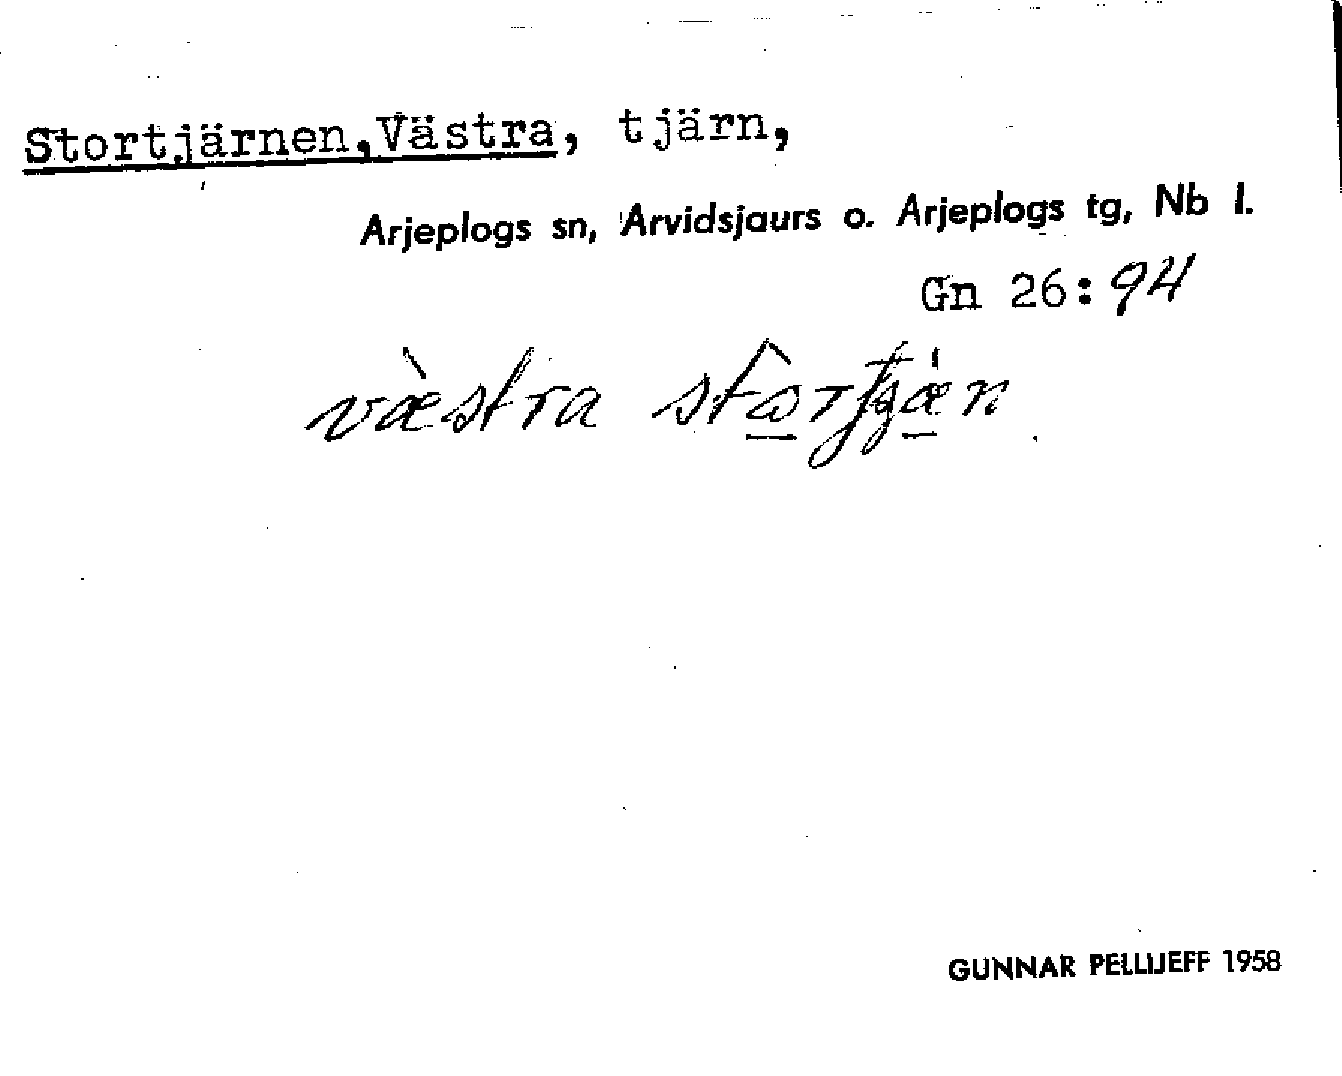 Stortjärnen,Västra, tjärn,
Arjeplogs sn, Arvidsjaurs o. Arjeplogs tg, Nb l.
Gn 26:94
væ̀stra
GUNNAR PELLIJEFF 1958